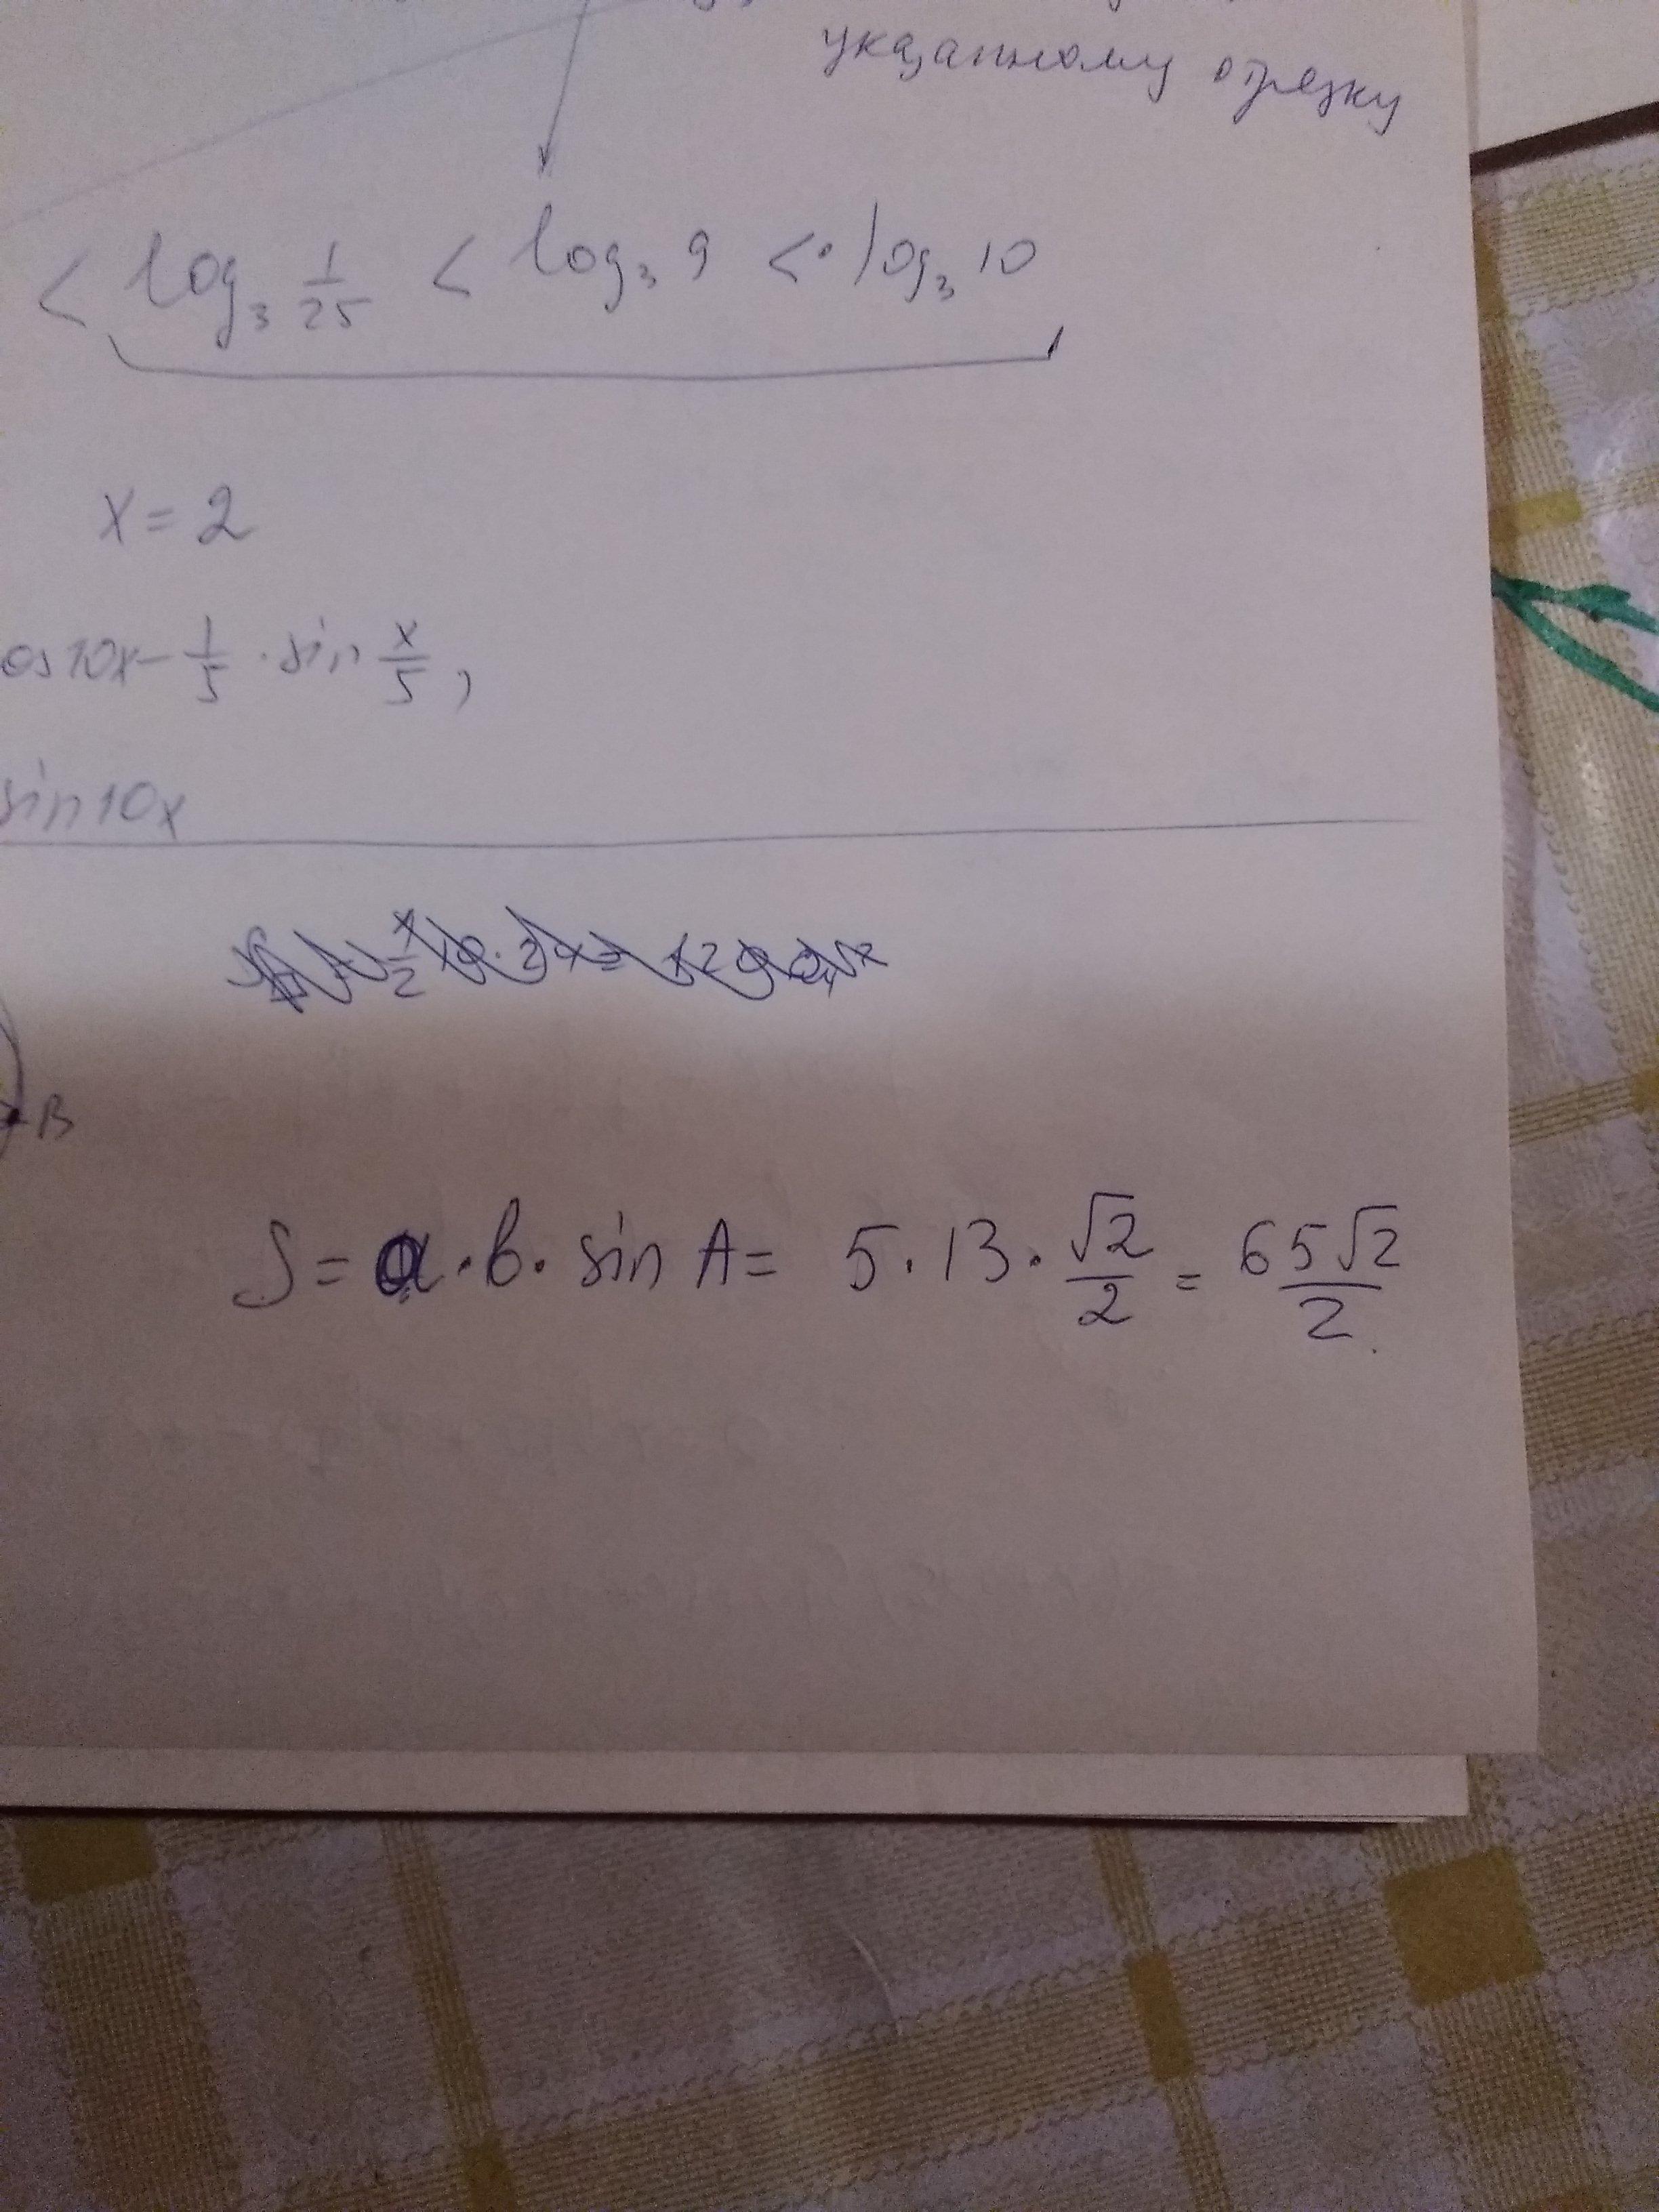 указанному отрезку
< log₃ 1/25 < log₃ 9 < log₃ 10
x = 2
os 10x - 1/5 · sin x/5,
sin 10x
B
S = a · b · sin A = 5 · 13 · √2/2 = 65√2/2